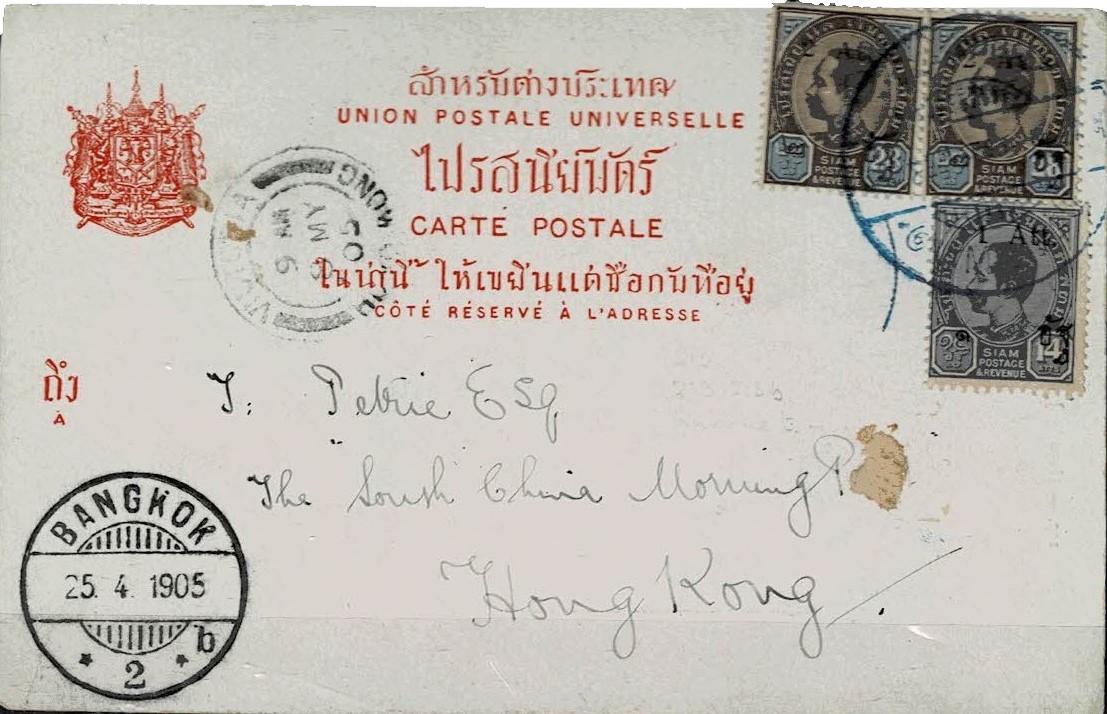 สำหรับต่างประเทศ
UNION POSTALE UNIVERSELLE
ไปรสนียบัตร์
CARTE POSTALE
ในน่านี้ ให้เขียนแต่ชื่อกับที่อยู่
CÔTÉ RÉSERVÉ À L'ADRESSE
ถึง
À
T. Petrie Esq
The South China Morning P
Hong Kong.
BANGKOK
25. 4. 1905
2 b
VICTORIA HONG KONG
9 AM
MY
05
SIAM
POSTAGE
& REVENUE
28
2 Atts
SIAM
POSTAGE
& REVENUE
28
1 Att.
SIAM
POSTAGE
& REVENUE
14
ATTS